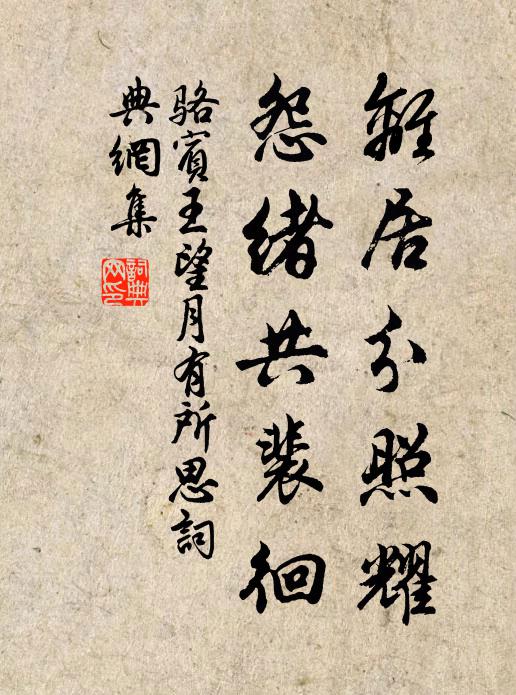 離居分照耀
怨緒共裴徊
駱賓王望月有所思詞
典網集
詞典
网印